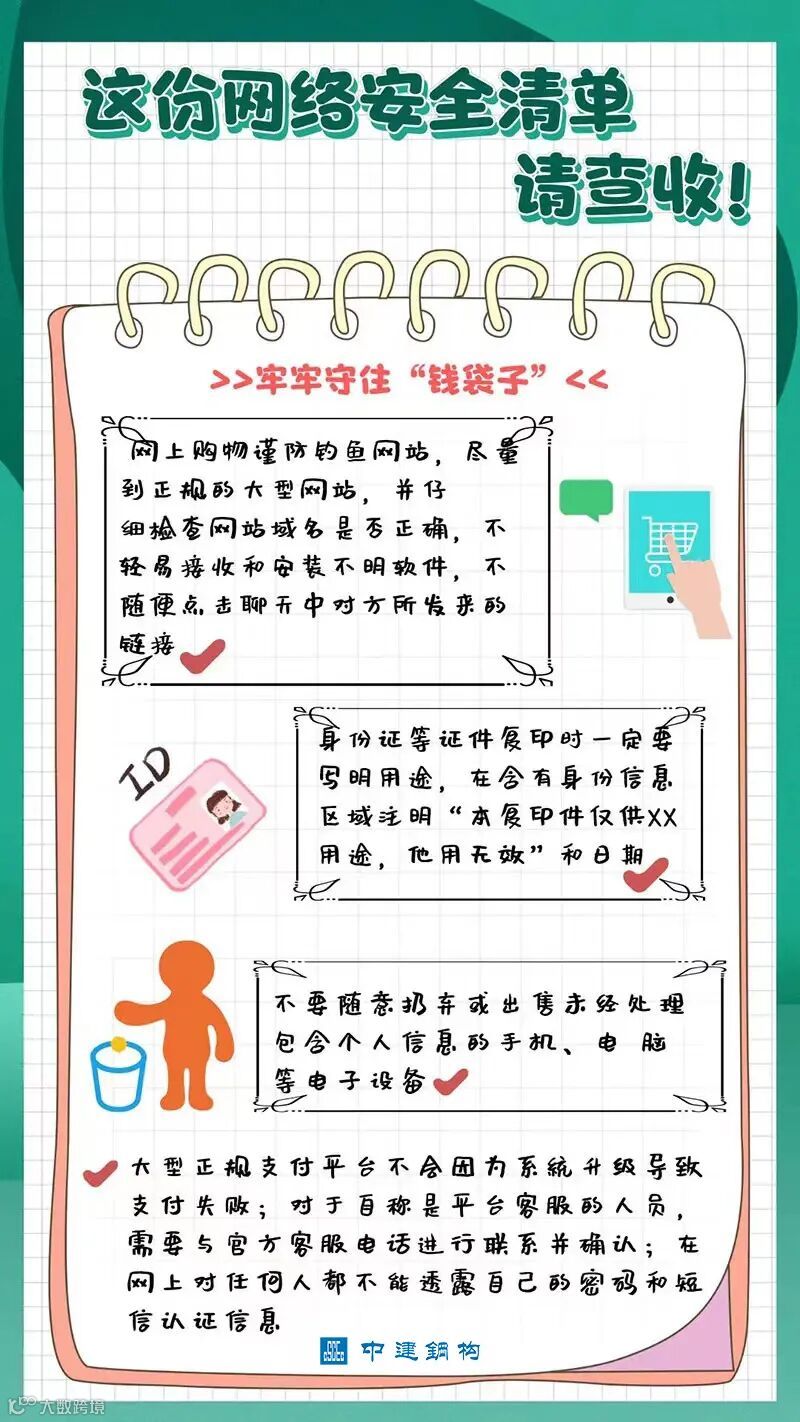 这份网络安全清单
请查收!
>>牢牢守住“钱袋子”<<
网上购物谨防钓鱼网站，尽量
到正规的大型网站，并仔
细检查网站域名是否正确，不
轻易接收和安装不明软件，不
随便点击聊天中对方所发来的
链接
ID
身份证等证件复印时一定要
写明用途，在含有身份信息
区域注明“本复印件仅供XX
用途，他用无效”和日期
不要随意扔弃或出售未经处理
包含个人信息的手机、电 脑
等电子设备
大型正规支付平台不会因为系统升级导致
支付失败；对于自称是平台客服的人员，
需要与官方客服电话进行联系并确认；在
网上对任何人都不能透露自己的密码和短
信认证信息
中建钢构
大数跨境